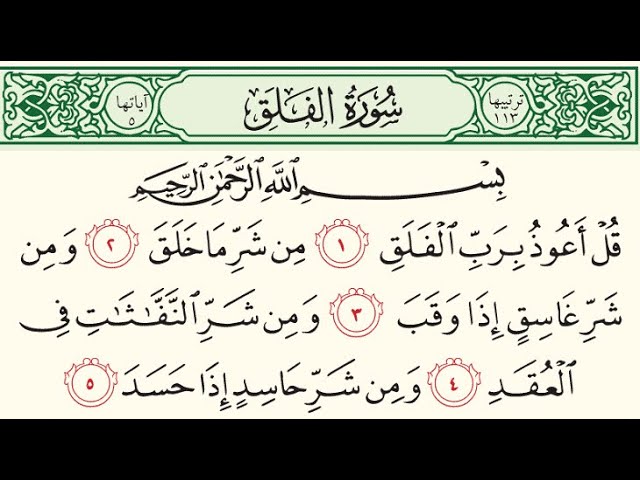 ترتيبها
١١٣
سُورَةُ الفَلَقِ
آياتها
٥
بِسْمِ اللَّهِ الرَّحْمَٰنِ الرَّحِيمِ
قُلْ أَعُوذُ بِرَبِّ الْفَلَقِ ١ مِن شَرِّ مَا خَلَقَ ٢ وَمِن
شَرِّ غَاسِقٍ إِذَا وَقَبَ ٣ وَمِن شَرِّ النَّفَّاثَاتِ فِي
الْعُقَدِ ٤ وَمِن شَرِّ حَاسِدٍ إِذَا حَسَدَ ٥